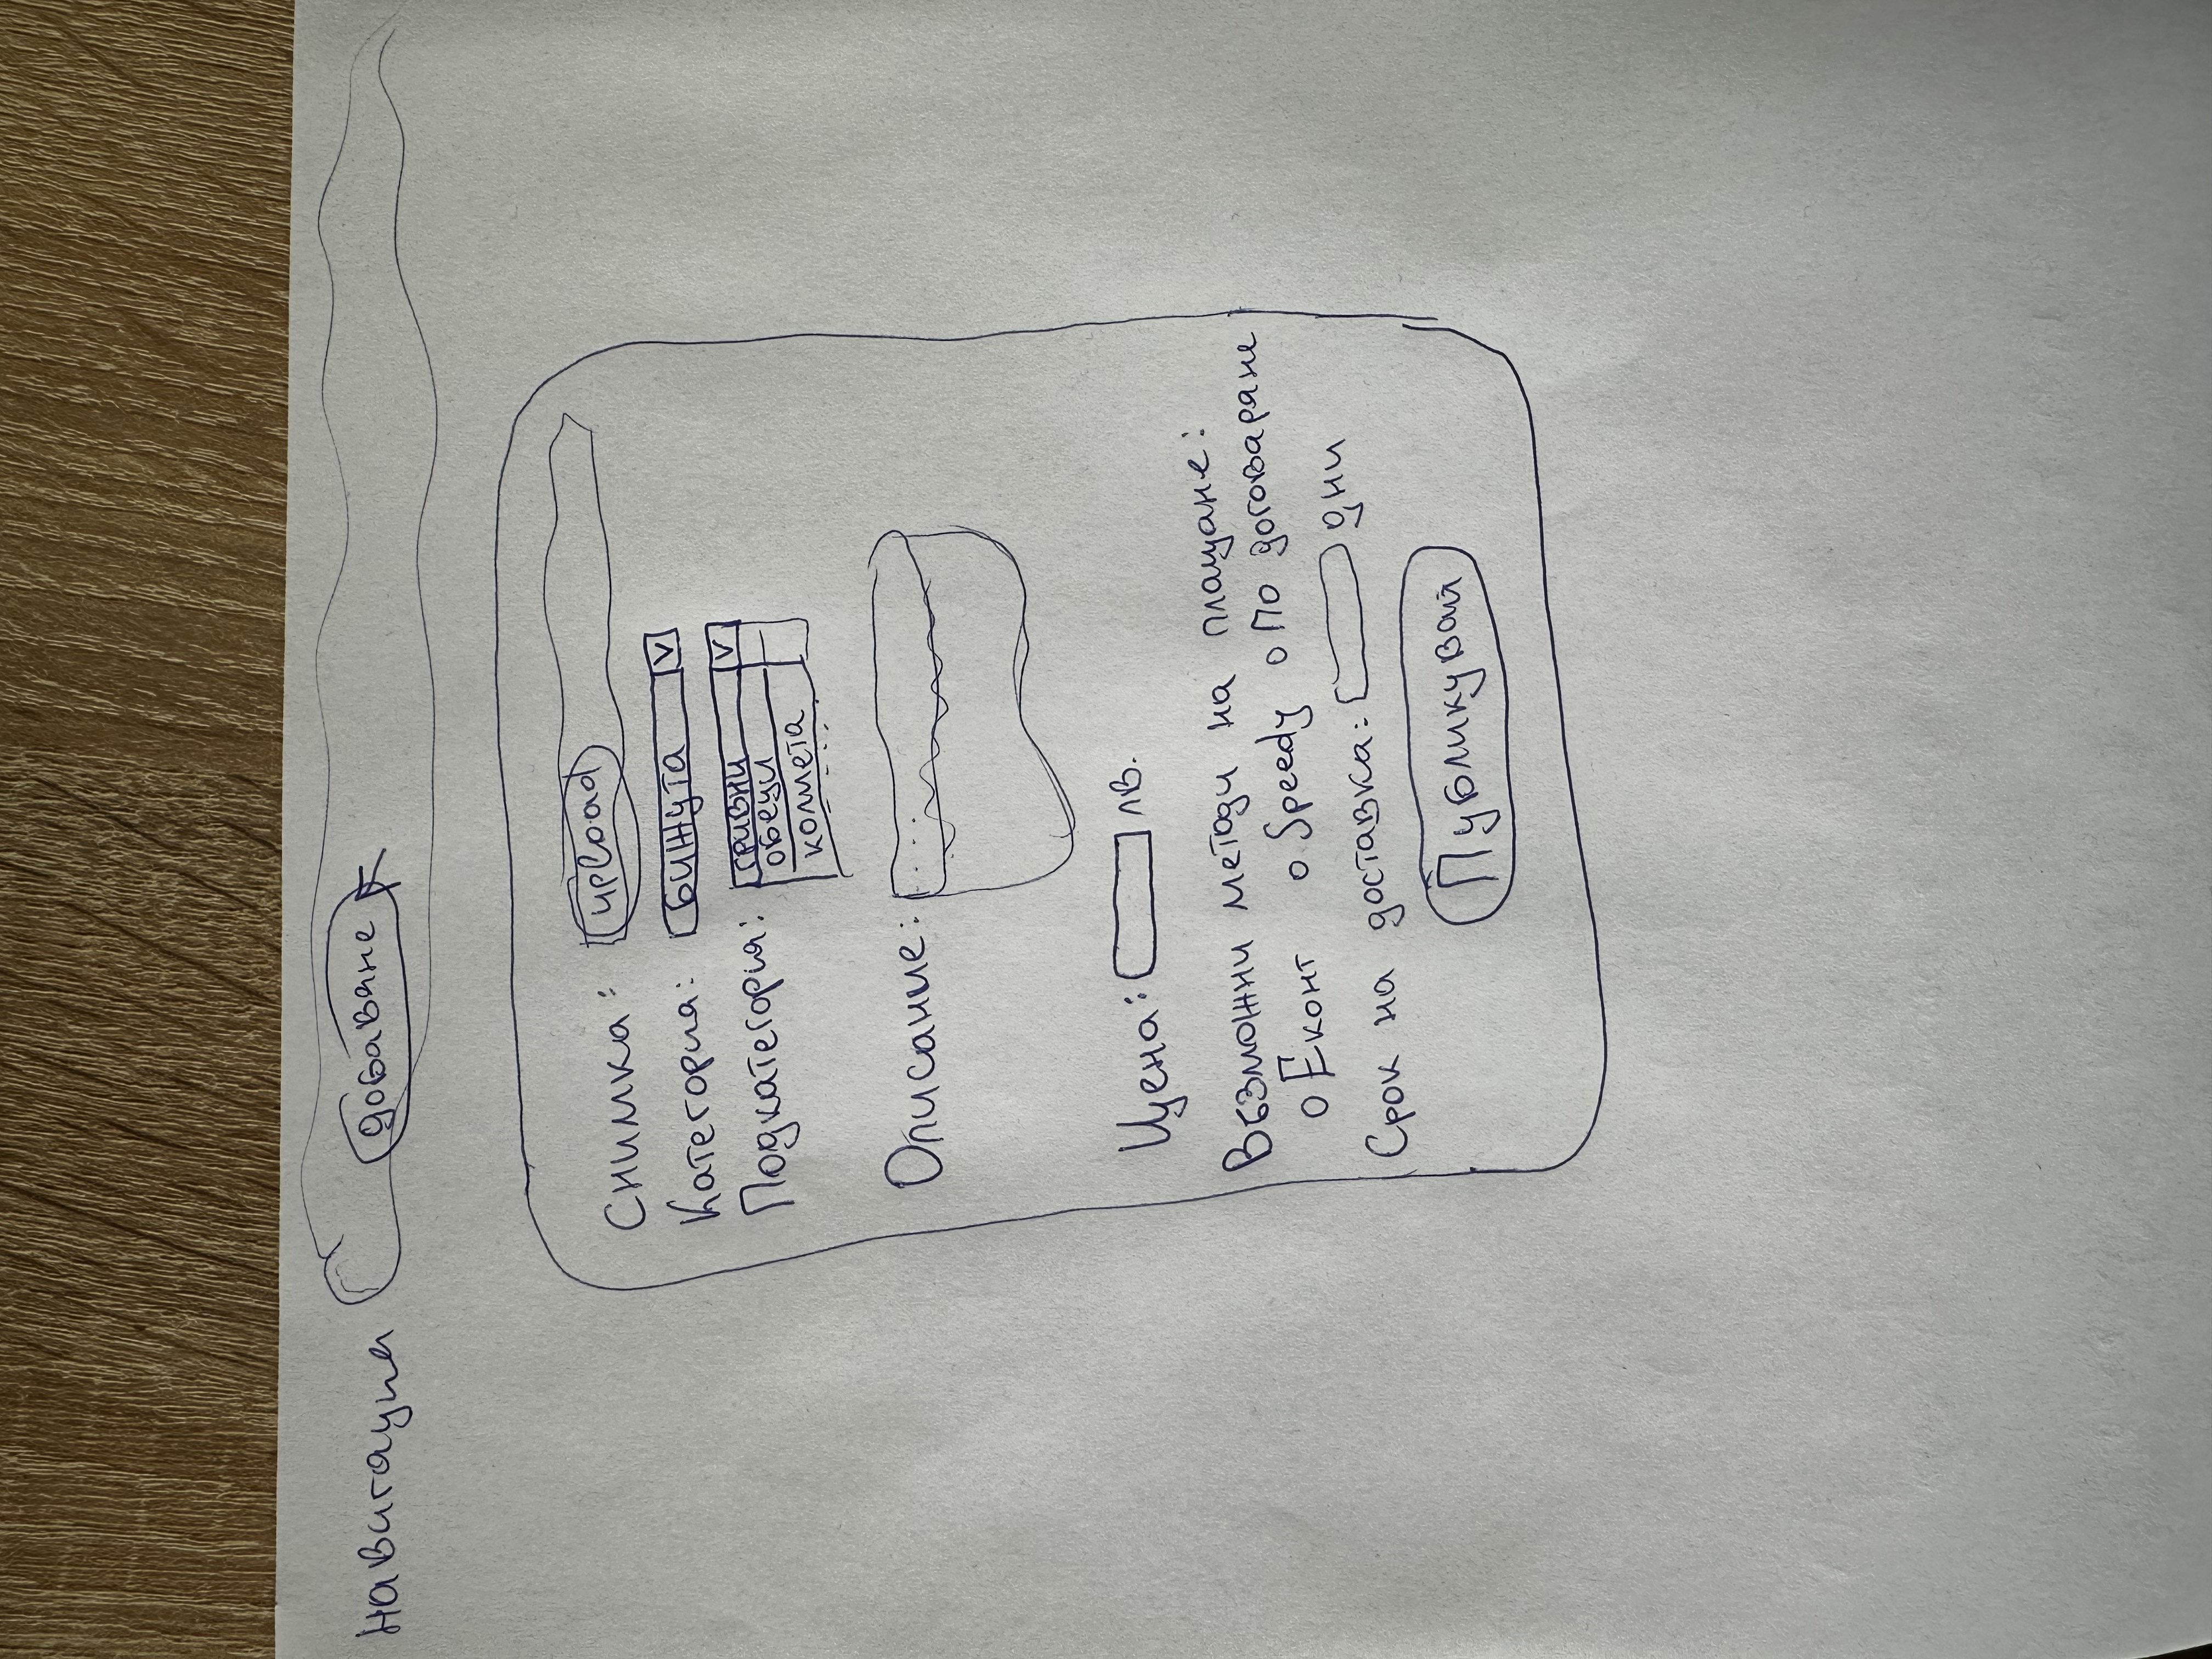 навигация добаване
Снимка: upload
Категория: бижута V
Подкатегория: гривни V
обеци
колиета
Описание: ....
Цена: лв.
Възможни методи на плащане:
o Еконт o Speedy o По договаряне
Срок на доставка: дни
Публикувай